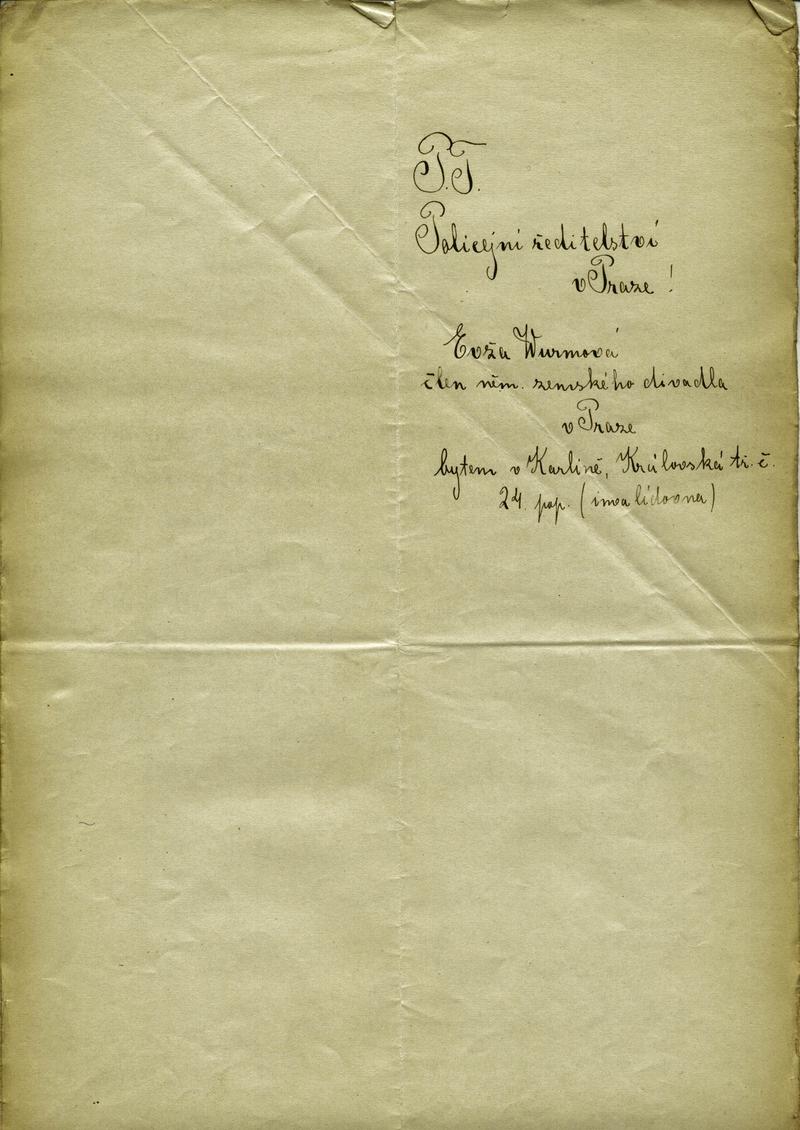 P.T.
Policejní ředitelství
v Praze!
Evža Wurmová
člen něm. zemského divadla
v Praze
bytem v Karlíně, Královská tř. č.
24. pop. (invalidovna)